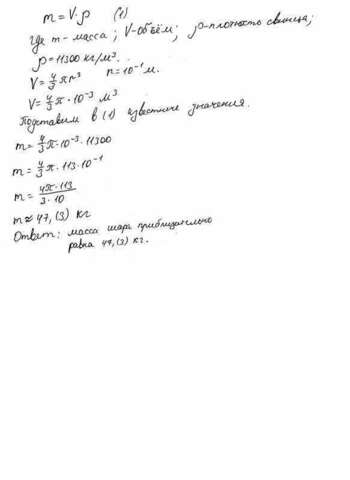 m = V·ρ (1)
Где m - масса; V - объём; ρ - плотность свинца;
ρ = 11300 кг/м³.
V = 4/3 πr³ r = 10⁻¹ м.
V = 4/3 π · 10⁻³ м³
Подставим в (1) известные значения.
m = 4/3 π · 10⁻³ · 11300
m = 4/3 π · 113 · 10⁻¹
m = 4π · 113 / 3 · 10
m ≈ 47,(3) кг
Ответ: масса шара приблизительно
равна 47,(3) кг.